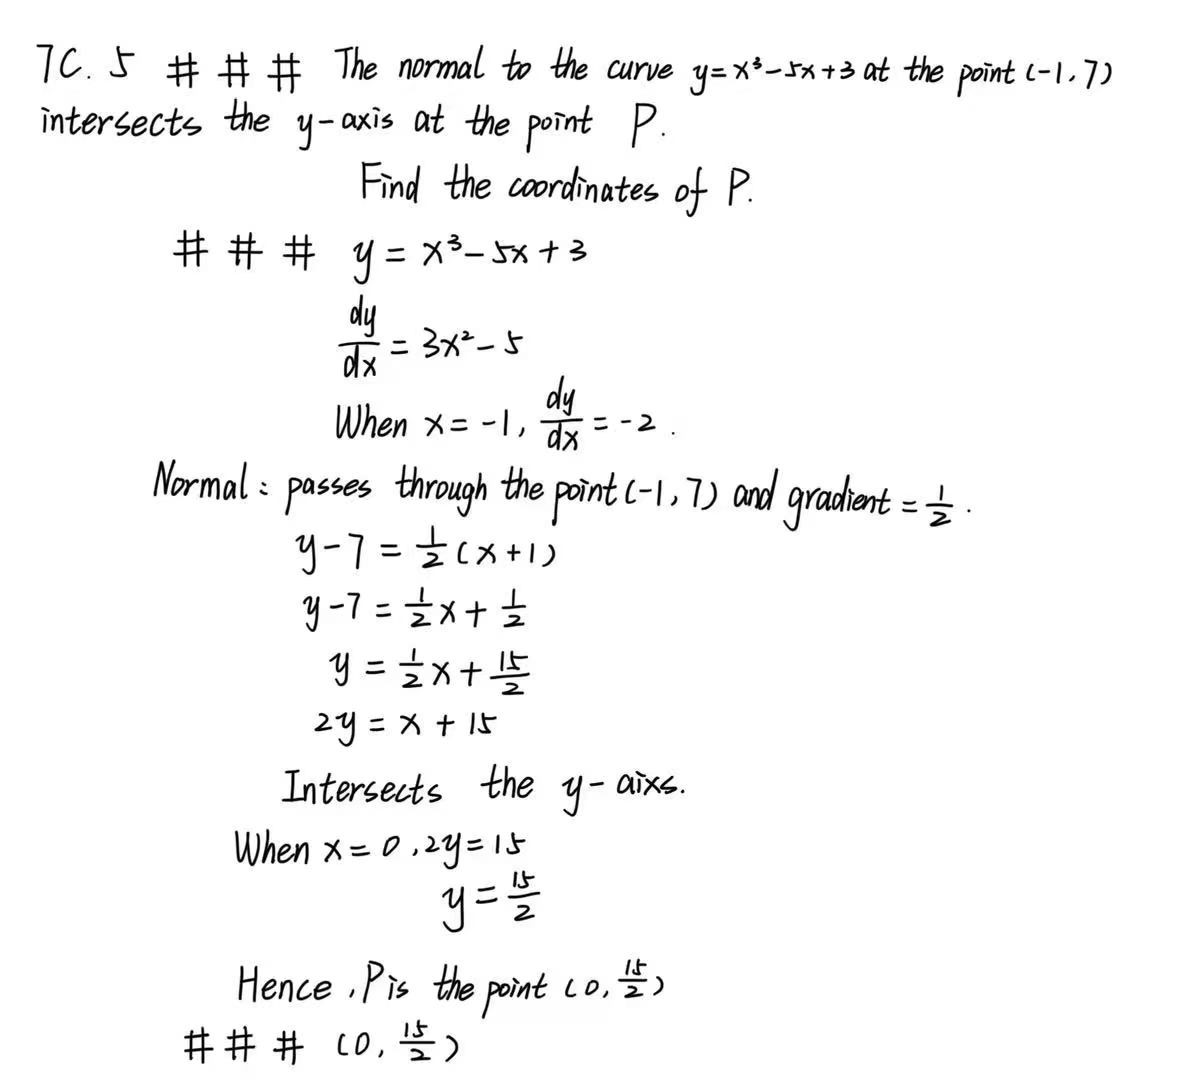 7C. 5 # # # The normal to the curve y=x³-5x+3 at the point (-1,7)
intersects the y-axis at the point P.
Find the coordinates of P.
# # # y = x³-5x+3
dy/dx = 3x²-5
When x=-1, dy/dx = -2.
Normal: passes through the point (-1,7) and gradient = 1/2.
y-7 = 1/2(x+1)
y-7 = 1/2x+1/2
y = 1/2x+15/2
2y = x+15
Intersects the y-aixs.
When x=0,2y=15
y=15/2
Hence, P is the point (0,15/2)
# # # (0,15/2)